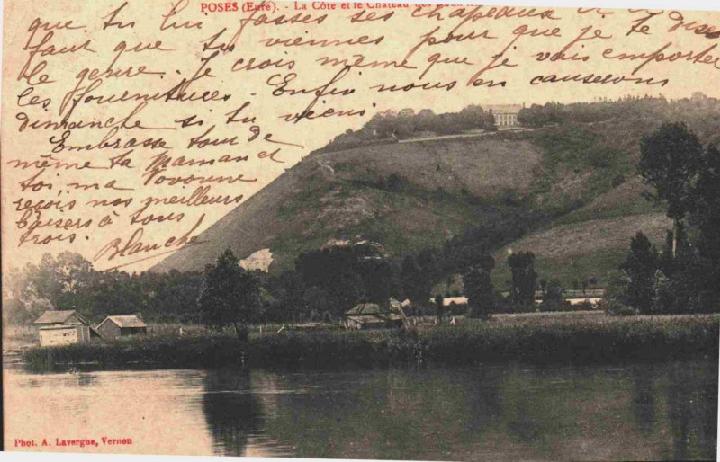 POSES (Eure). - La Côte et le Château des
que tu lui fasses ses chapeaux
faut que tu viennes pour que je te dise
le genre. Je crois même que je vais emporter
les fournitures. Enfin nous en causerons
dimanche si tu viens.
Embrasse
même ta Maman et
toi, ma Vovonne
reçois nos meilleurs
baisers à tous
trois.
Blanche
Phot. A. Lavergne, Vernon